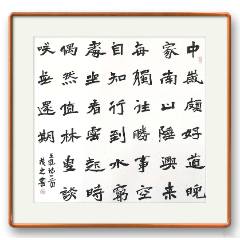 中歲頗好道晚
家南山陲興來
每獨往勝事空
自知行到水窮
處坐看雲起時
偶然值林叟談
咲無還期